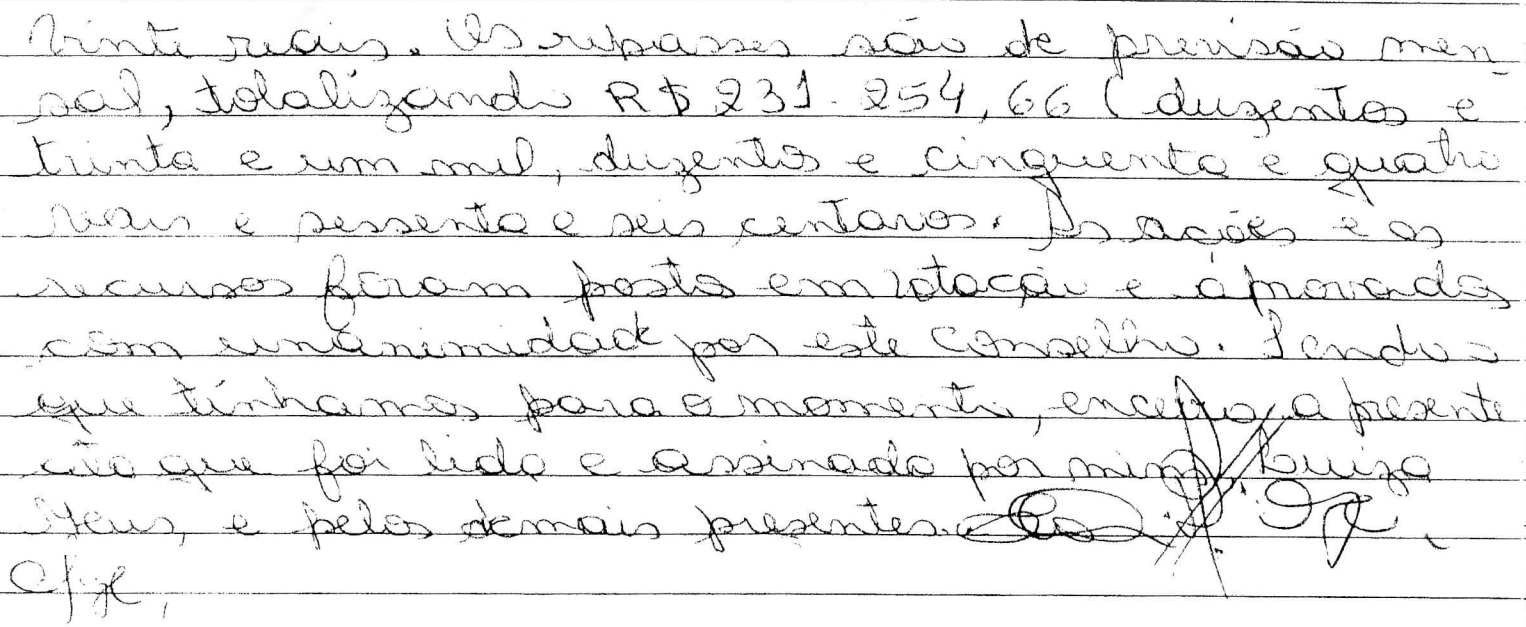 Vinte reais. Os repasses são de previsão men-
sal, totalizando R$ 231.254,66 (duzentos e
trinta e um mil, duzentos e cinquenta e quatro
reais e sessenta e seis centavos. As ações e os
recursos foram posto em votação e aprovados
com unânimidade por este Conselho. Sendo o
que tínhamos para o momento, encerro a presente
ata que foi lida e assinada por mim, Luiza
e pelos demais presentes.